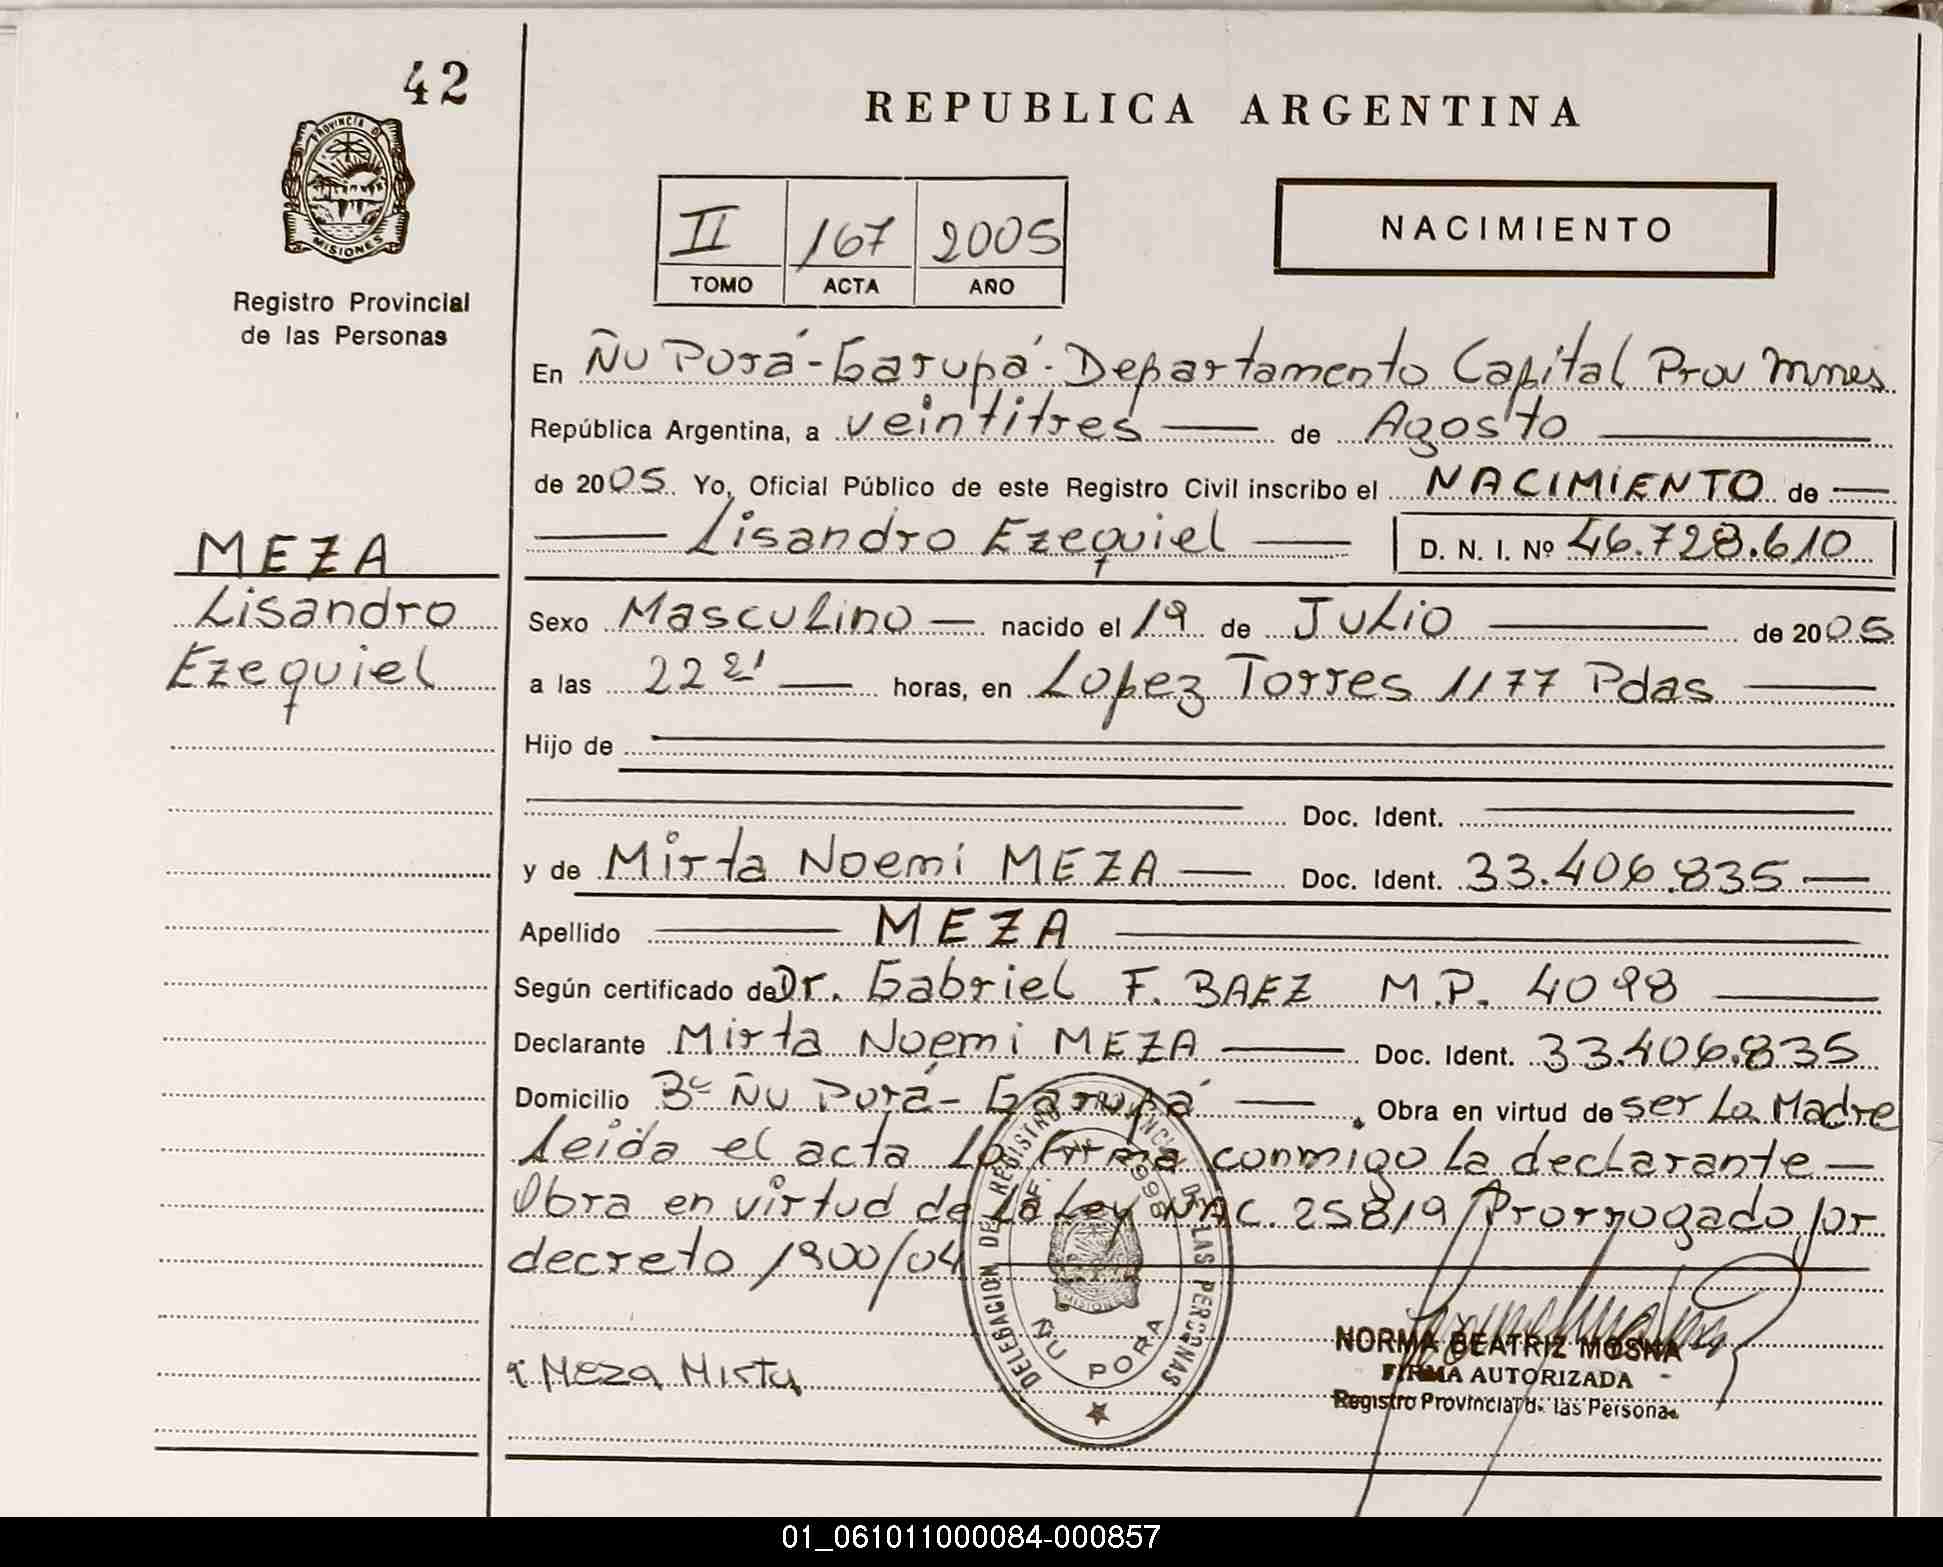 42
PROVINCIA DE
MISIONES
Registro Provincial
de las Personas
MEZA
Lisandro
Ezequiel
REPUBLICA ARGENTINA
II 167 2005
TOMO ACTA AÑO
NACIMIENTO
En Ñu Porá - Garupá - Departamento Capital Prov Mnes
República Argentina, a veintitres de Agosto
de 2005 Yo, Oficial Público de este Registro Civil inscribo el NACIMIENTO de
Lisandro Ezequiel D. N. I. Nº 46.728.610
Sexo Masculino nacido el 19 de Julio de 2005
a las 22 21 horas, en Lopez Torres 1177 Pdas
Hijo de
Doc. Ident.
y de Mirta Noemi MEZA Doc. Ident. 33.406.835
Apellido MEZA
Según certificado de Dr. Gabriel F. BAEZ M.P. 4098
Declarante Mirta Noemi MEZA Doc. Ident. 33.406.835
Domicilio Bº Ñu Porá - Garupá Obra en virtud de ser La Madre
Leida el acta La firma conmigo la declarante
Obra en virtud de La Ley NAC. 25819 Prorrogado por
decreto 1900/04
DELEGACION DE REGISTRO PROVINCIAL DE LAS PERSONAS
MISIONES
ÑU PORA
Meza Mirta
NORMA BEATRIZ MOSNA
FIRMA AUTORIZADA
Registro Provincial d. las Personas
01_061011000084-000857